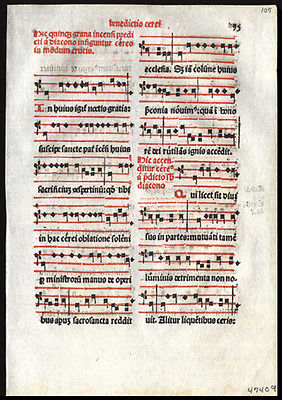 105
benedictio cerei
Hic quinqꝫ grana incensi predi
cti a diacono infiguntur cereo
in modum crucis.
In huius igit̄ noctis gratia:
suscipe sancte pat̄ incēsi huius
sacrificium vespertinū: qḋ tibi
in hac cerei oblatione solēni
ꝑ ministrorū manus de operi
bus apuꝫ sacrosancta reddit
ecclesia. Sꝫ iā colūne huius
p̄conia nouim᷒: quā i hono
rē dei rutilās ignis accēdit.
Hic accen
ditur cere᷒
a p̄dicto
diacono
Qui licet sit diui
sus in partes: mutuati tamē
luminis detrimenta non no
uit. Alitur liquētibus ceris:
47409